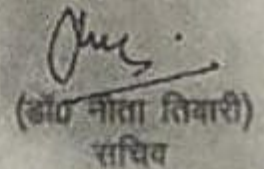 (डॉ0 नीता तिवारी)
सचिव